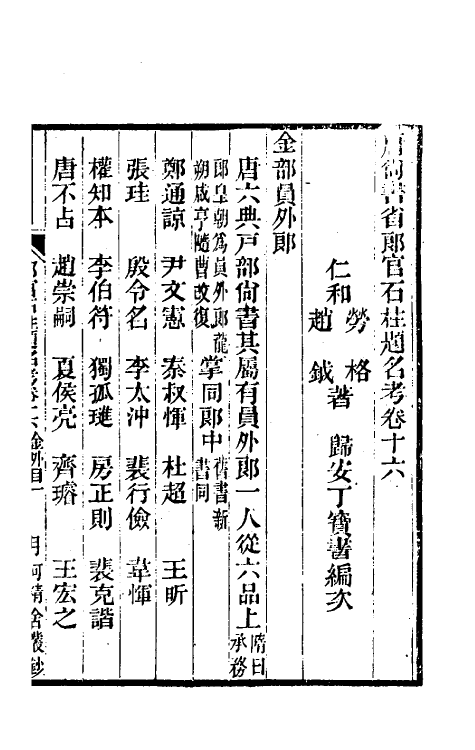 唐尚書省郎官石柱題名考卷十六
仁和 勞格 趙鉞 著 歸安丁寶書編次
金部員外郎
唐六典戶部尚書其屬有員外郎一人從六品上 隋曰承務
郎皇朝為員外郎龍朔咸亨隨曹改復 掌同郎中 舊書新書同
鄭通諒 尹文憲 泰叔惲 杜超 王昕
張珪 殷令名 李太沖 裴行儉 韋惲
權知本 李伯符 獨孤璡 房正則 裴克諧
唐不占 趙崇嗣 夏侯亮 齊璿 王宏之
郎官石柱題名考卷十六 金外目一 月河精舍叢鈔